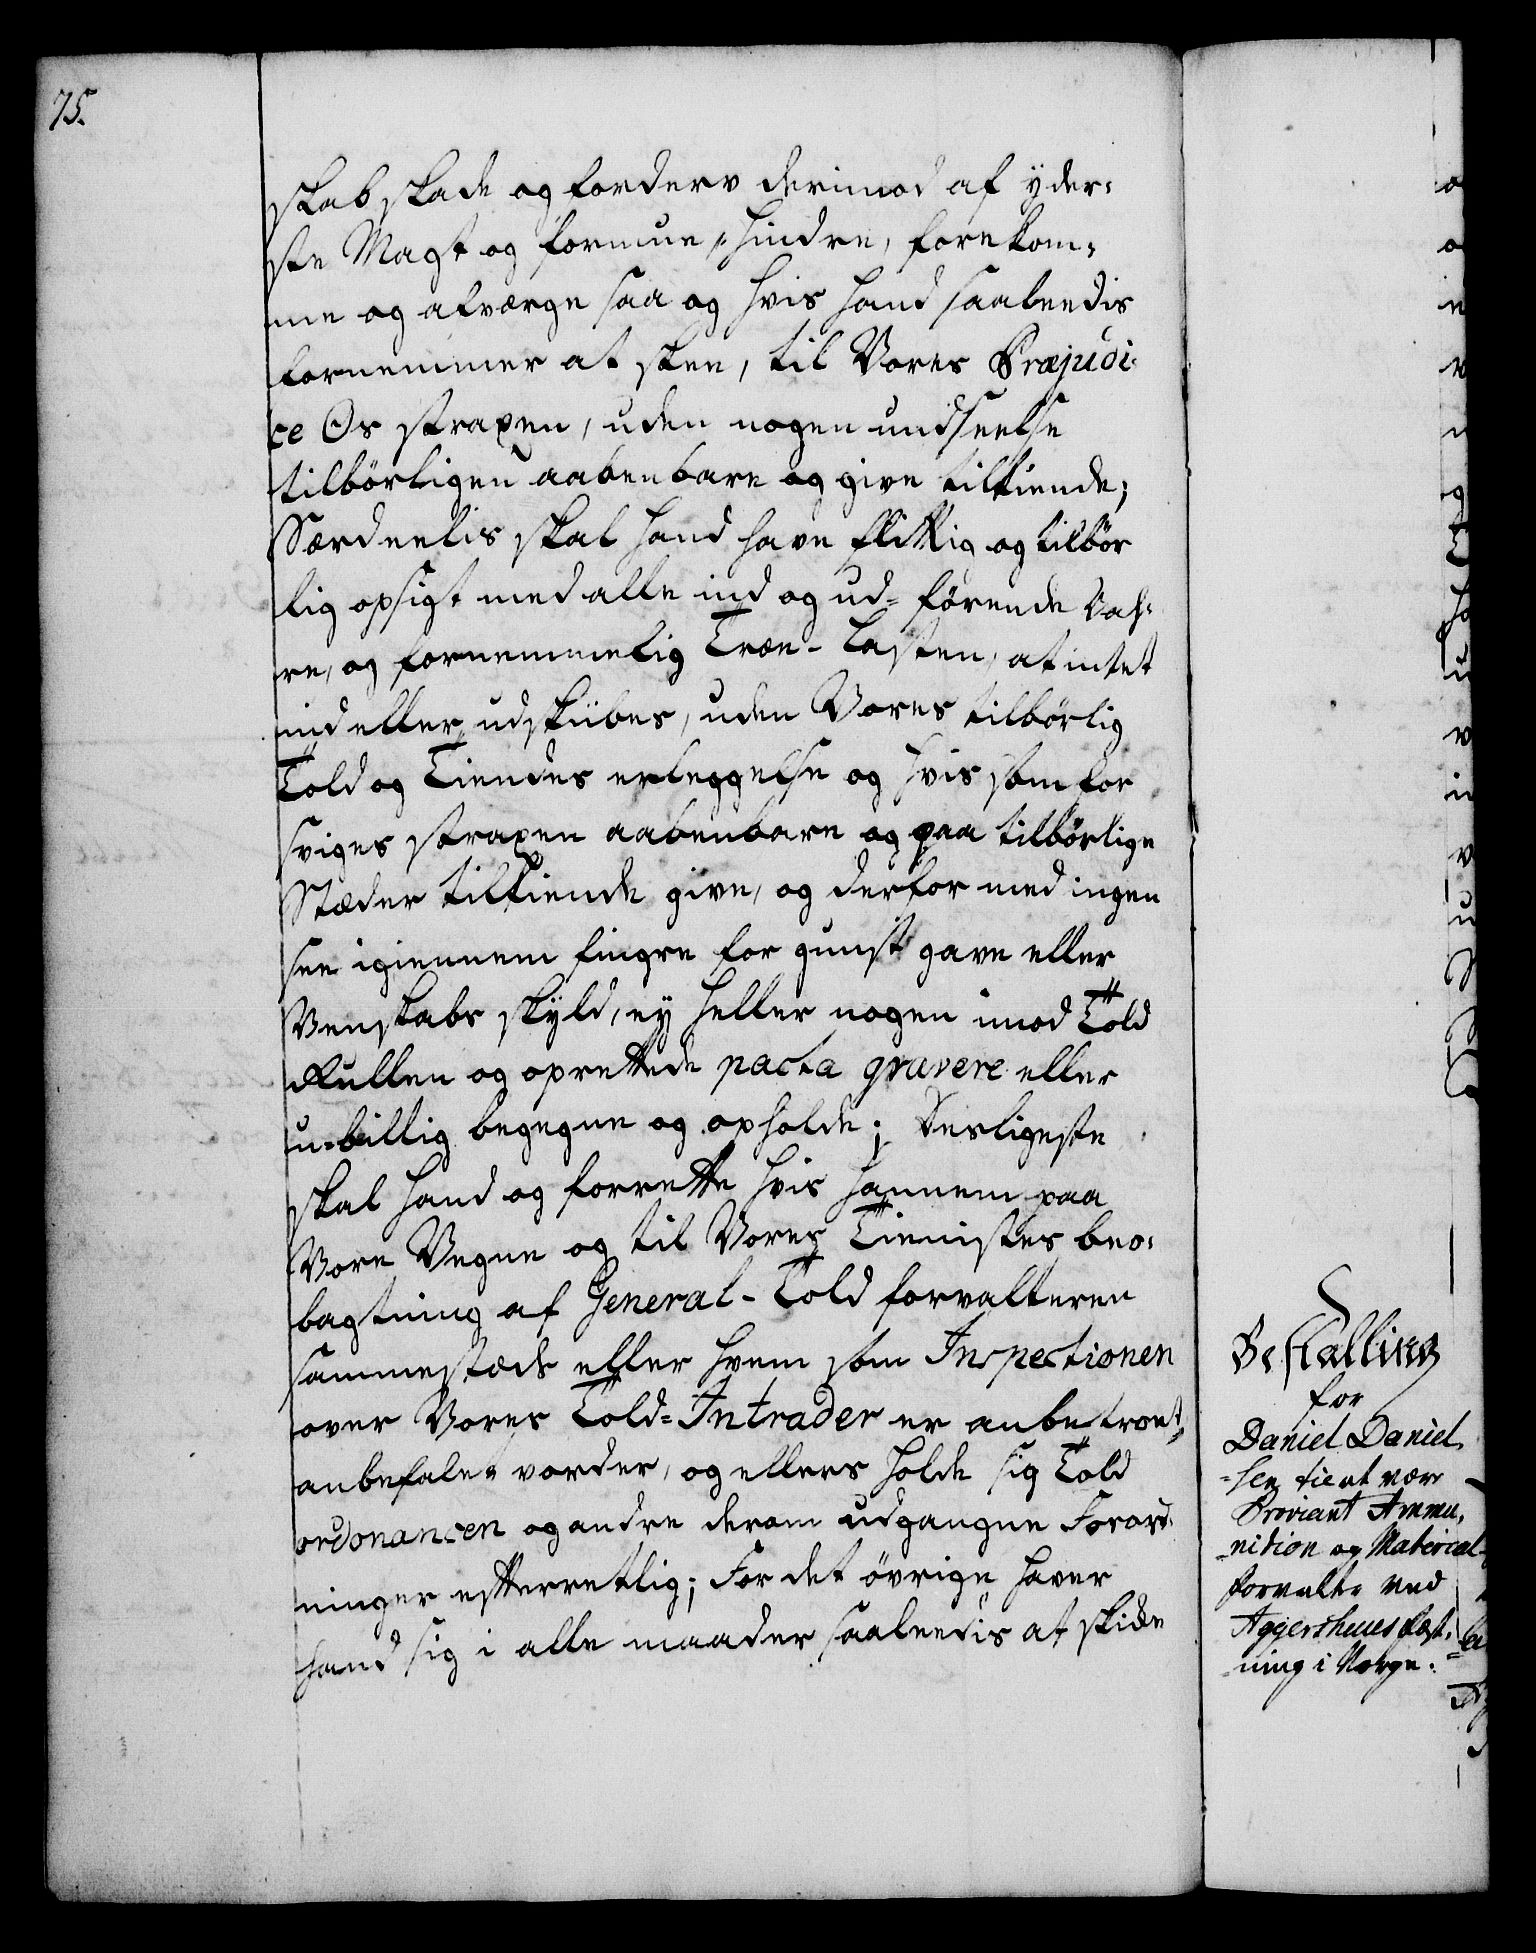 75.
skab skade og forderv derimod af yder-
ste Magt og formue, hindre, forekom-
me og afværge saa og hvis hand saaleedis
fornemmer at skee, til Vores Præjudi-
ce Os straxen, uden nogen undseelse
tilbørligen aabenbare og give tilkiende;
Særdeelis skal hand have flittig og tilbør
lig opsigt med alle ind og ud- førende Vah-
re, og fornemmelig Træe- Lasten, at intet
ind eller udskibes, uden Vores tilbørlig
Told og Tiendes erleggelse og hvis som for
sviges straxen aabenbare og paa tilbørlige
Stæder tilkiende give, og derfor med ingen
see igiennem fingre for gunst gave eller
Venskabs skyld, ey heller nogen imod Told
Rullen og oprettede pacta gravere eller
u-billig begegne og opholde; Desligeste
skal hand og forrette hvis hannem paa
Vore Vegne og til Vores Tienistes beo-
bagtning af General- Told forvalteren
sammestæds eller hvem som Inspectionen
over Vores Told- Intrader er anbetroet,
anbefalet vorder, og ellers holde sig Told
ordonancen og andre derom udgangne Forord-
ninger efterretlig; For det øvrige haver
hand sig i alle maader saaleedis at skikke
Bestalling
for
Daniel Daniel-
sen til at være
Proviant Ammu-
nition og Material-
forvalter ved
Aggershuus fæst-
ning i Norge.